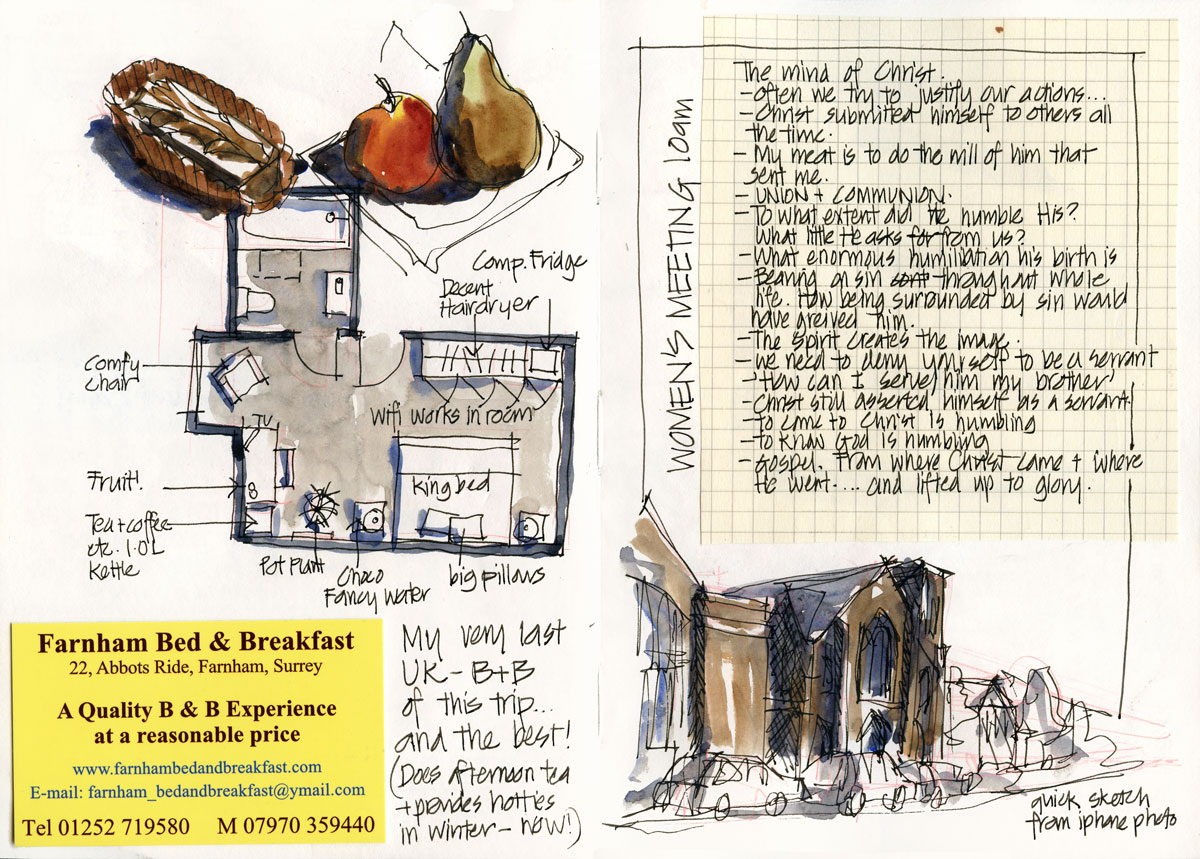 Comp. Fridge
Decent
Hairdryer
Comfy
chair
TV
wifi works in room
Fruit!
King bed
Tea + coffee
etc. 1.0L
Kettle
Pot Plant
Choco
Fancy Water
big pillows
Farnham Bed & Breakfast
22, Abbots Ride, Farnham, Surrey
A Quality B & B Experience
at a reasonable price
www.farnhambedandbreakfast.com
E-mail: farnham_bedandbreakfast@ymail.com
Tel 01252 719580 M 07970 359440
My very last
UK - B+B
of this trip...
and the best!
(Does afternoon tea
+ provides hotties
in winter - now!)
WOMEN'S MEETING 10am
The mind of Christ.
- Often we try to justify our actions...
- Christ submitted himself to others all
the time.
- My meat is to do the mill of him that
sent me.
- UNION + COMMUNION.
- To what extent did He humble His?
What little He asks for from us?
- What enormous humiliation his birth is
- Bearing on sin throughout whole
life. How being surrounded by sin would
have greived him.
- The spirit creates the image.
- we need to deny yourself to be a servant
- 'How can I serve him my brother'
- Christ still asserted himself as a servant!
- to come to Christ is humbling
- to know God is humbling
- Gospel. From where Christ came + where
He went.... and lifted up to glory.
quick sketch
from iphone photo